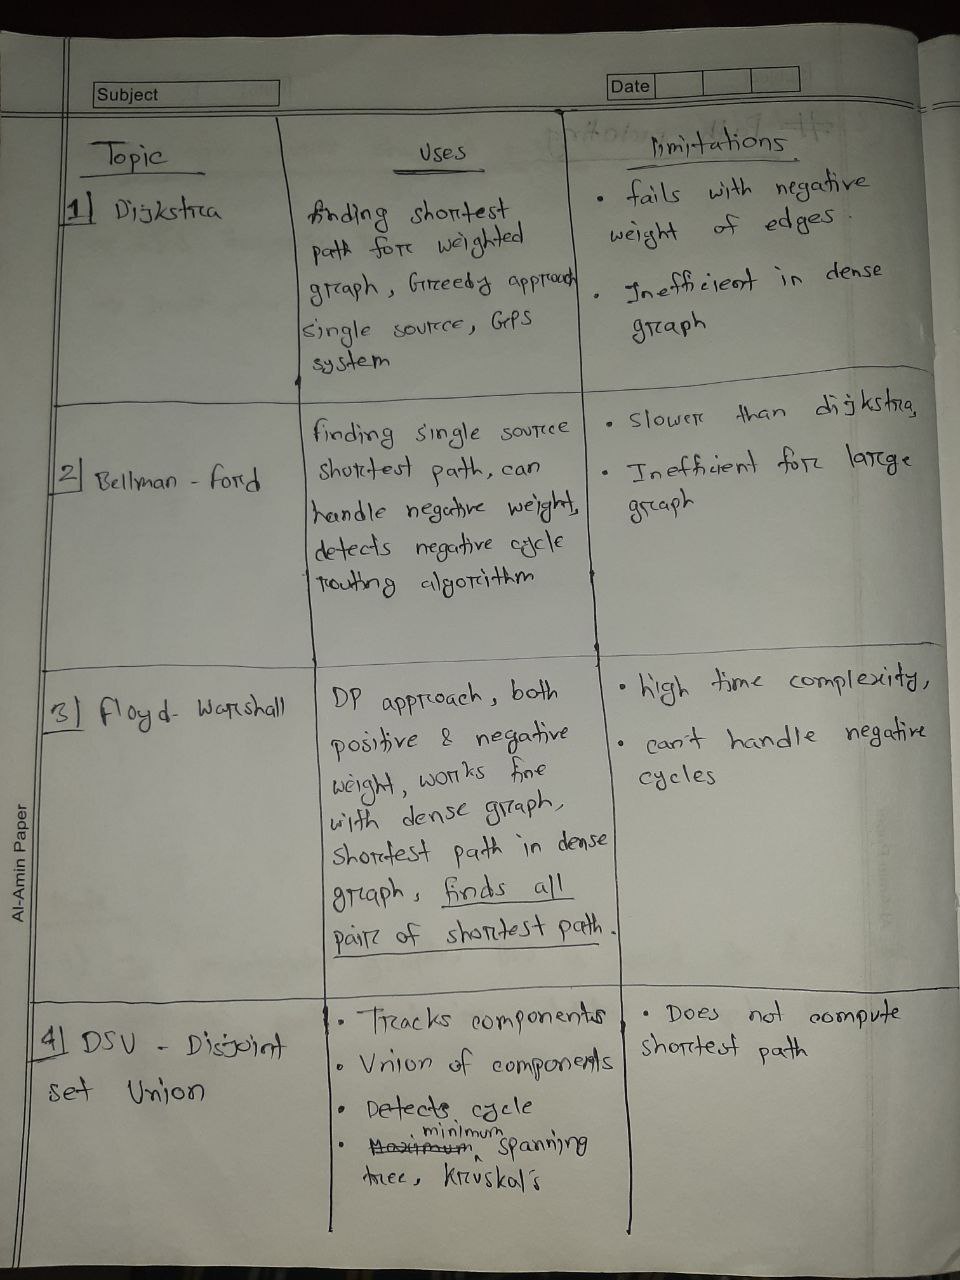 Subject
Date
Topic
Uses
limitations
1) Dijkstra
finding shortest
path for weighted
graph, Greedy approach
single source, GPS
system
• fails with negative
weight of edges.
• Inefficient in dense
graph
2) Bellman - ford
finding single source
shortest path, can
handle negative weight,
detects negative cycle
routing algorithm
• slower than dijkstra,
• Inefficient for large
graph
3) floyd- warshall
DP approach, both
positive & negative
weight, works fine
with dense graph,
shortest path in dense
graph, finds all
pair of shortest path.
• high time complexity,
• can't handle negative
cycles
4) DSU - Disjoint
set Union
• Tracks components
• Union of components
• Detects cycle
minimum
• Maximum ^ spanning
tree, kruskal's
• Does not compute
shortest path
Al-Amin Paper